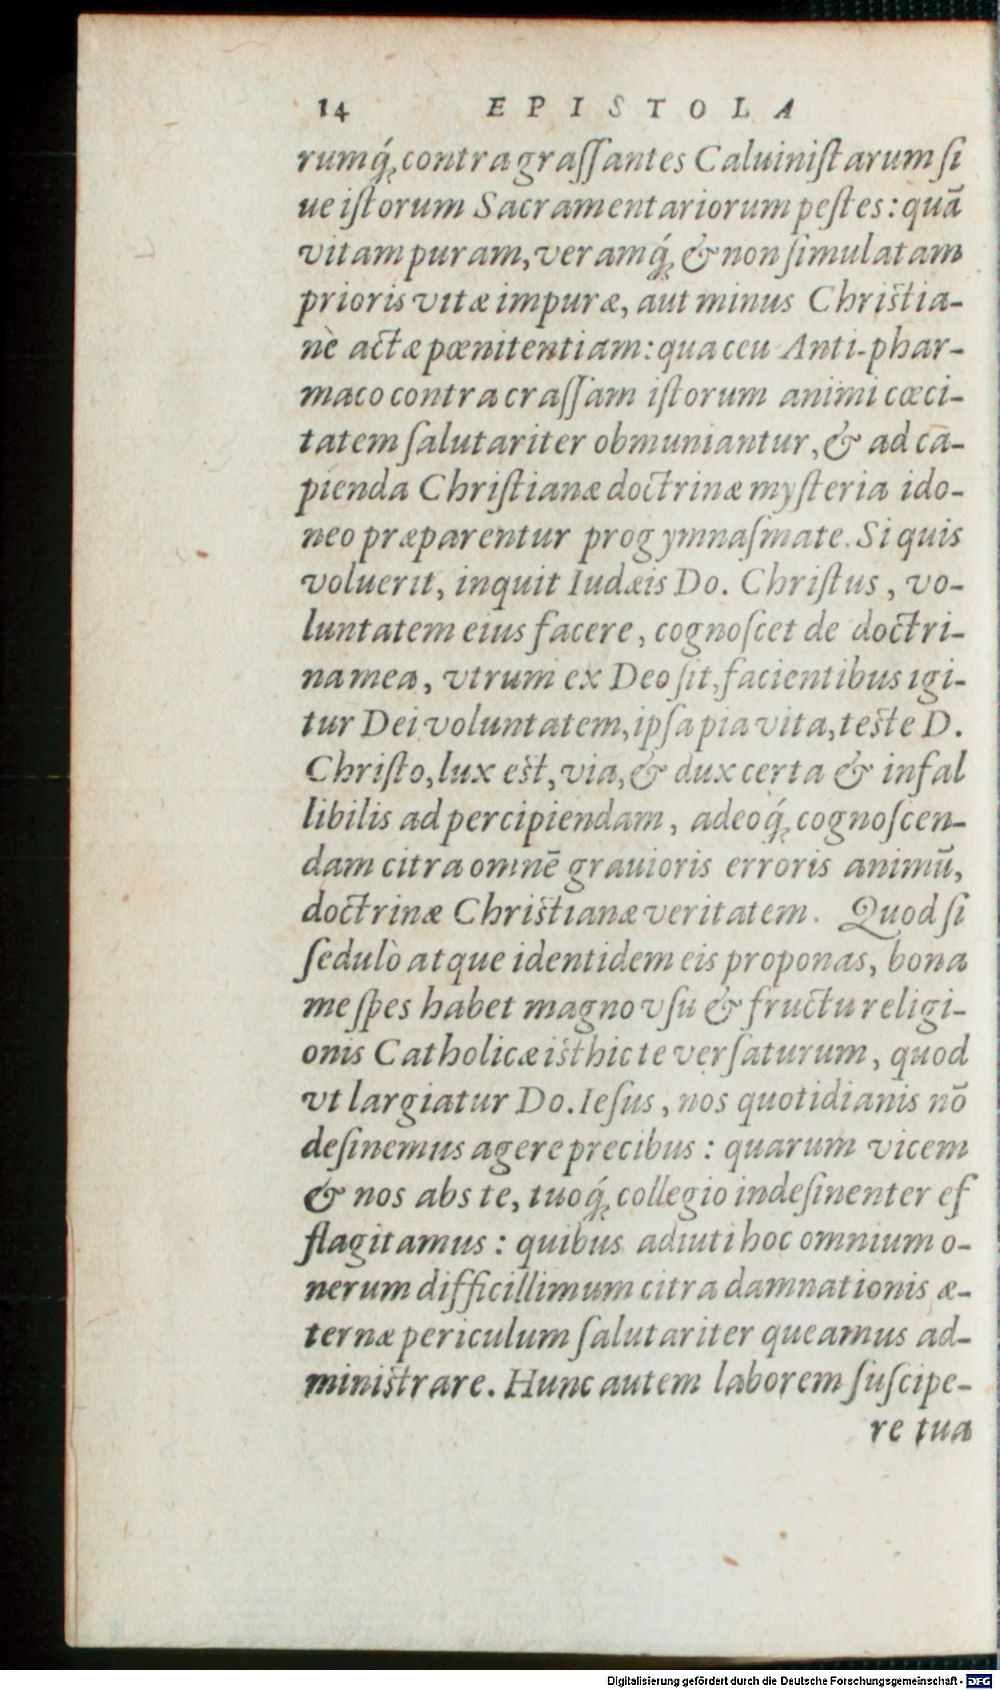 14 EPISTOLA
rumq́; contra graſſantes Caluiniſtarum ſi
ue iſtorum Sacramentariorum peſtes: quā
vitam puram, veramq́; & non ſimulatam
prioris vitæ impuræ, aut minus Chriſtia-
nè actæ pœnitentiam: qua ceu Anti-phar-
maco contra craſſam iſtorum animi cœci-
tatem ſalutariter obmuniantur, & ad ca-
pienda Chriſtianæ doctrinæ myſteria ido-
neo præparentur progymnaſmate. Si quis
voluerit, inquit Iudæis Do. Chriſtus, vo-
luntatem eius facere, cognoſcet de doctri-
na mea, vtrum ex Deo ſit, facientibus igi-
tur Dei voluntatem, ipſa pia vita, teſte D.
Chriſto, lux eſt, via, & dux certa & infal
libilis ad percipiendam, adeoq́; cognoſcen-
dam citra omnē grauioris erroris animū,
doctrinæ Chriſtianæ veritatem. Quod ſi
ſedulò atque identidem eis proponas, bona
me ſpes habet magno vſu & fructu religi-
onis Catholicæ iſthic te verſaturum, quod
vt largiatur Do. Ieſus, nos quotidianis nō
deſinemus agere precibus: quarum vicem
& nos abs te, tuoq́; collegio indeſinenter ef
flagitamus: quibus adiuti hoc omnium o-
nerum difficillimum citra damnationis æ-
ternæ periculum ſalutariter queamus ad-
miniſtrare. Hunc autem laborem ſuſcipe-
re tua
Digitalisierung gefördert durch die Deutsche Forschungsgemeinschaft - DFG